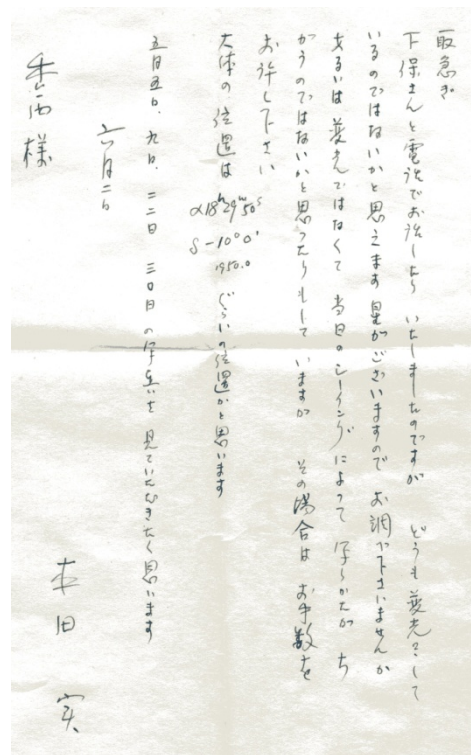 取急ぎ
下保さんと電話でお話したり いたしましたのですが どうも変光をして
いるのではないかと思えます星がございますので お調べ下さいませんか
あるいは変光ではなくて 当日のシーイングによって 写りかたが ち
がうのではないかと思ったりもして いますが その場合は お手数を
お許し下さい
大体の位置は α18h29m50s
δ-10°0'
1950.0 ぐらいの位置かと思います
五月五日、九日、二二日 三〇日 の写真を 見ていただきたく思います
六月二日
本田 実
様